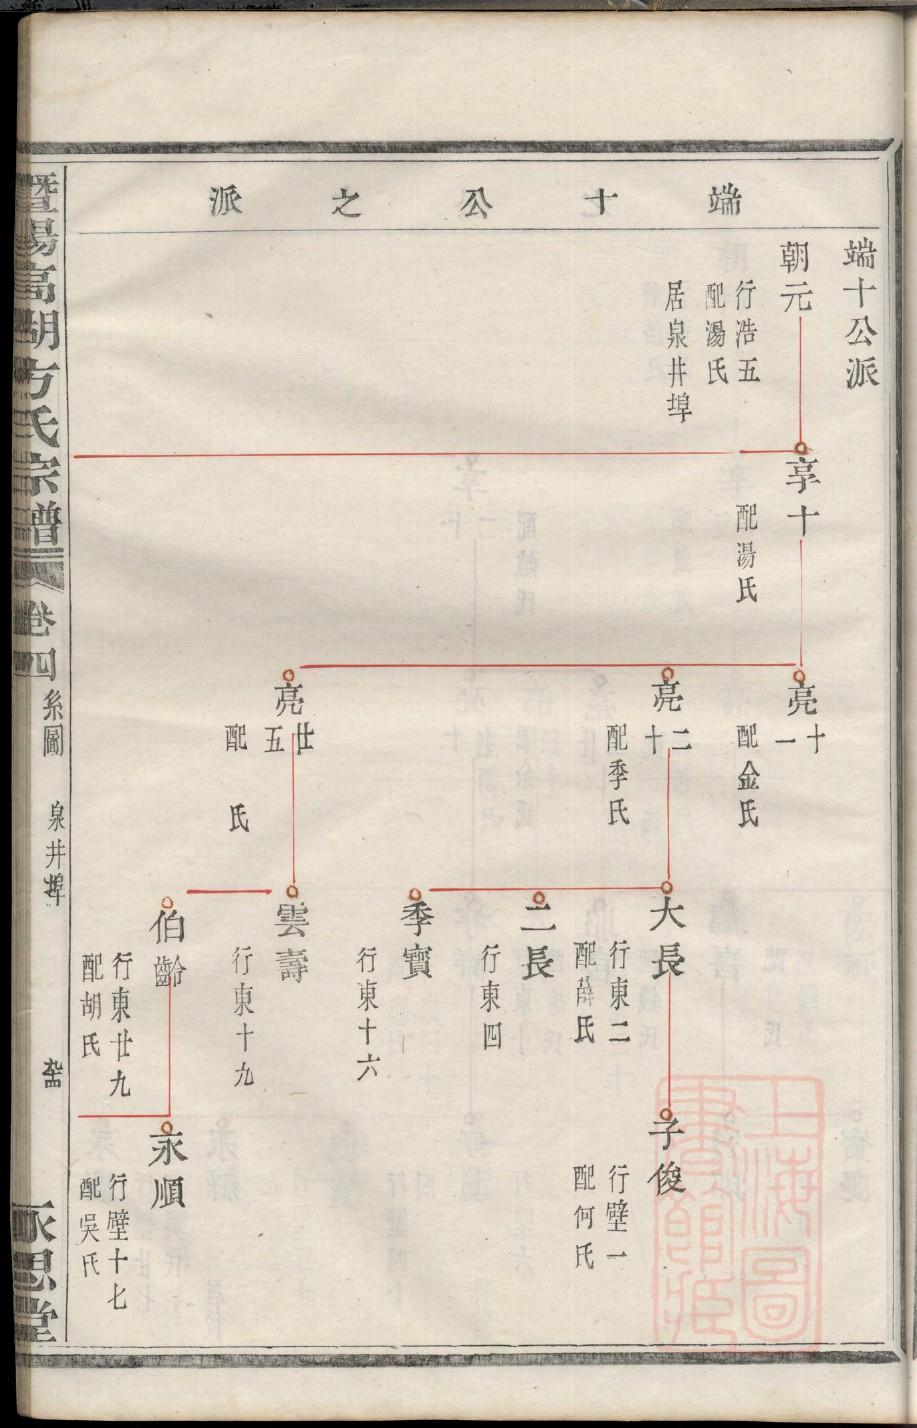 端十公之派
端十公派
朝元
行浩五
配湯氏
居泉井埠
享十
配湯氏
亮十一
配金氏
亮二十
配季氏
亮廿五
配　氏
大長
行東二
配薛氏
二長
行東四
季寶
行東十六
雲壽
行東十九
伯齡
行東廿九
配胡氏
子俊
行壁一
配何氏
永順
行壁十七
配吳氏
暨陽高湖方氏宗譜
卷四
系圖
泉井埠
永思堂
上海圖書館藏